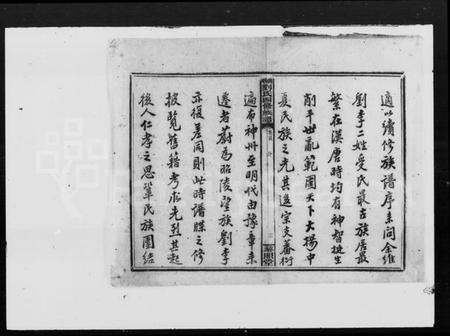 適以續修族譜序來問余維
劉李二姓受氏最古族居最
繁在漢唐時均有神智挺生
削平世亂範圍天下大揚中
夏民族之光其遙宗支蕃衍
遍布神州至明代由豫章來
遷者蔚為昭陵望族劉李
亦復差同則此時譜牒之修
披覽舊籍考求先烈其起
後人仁孝之思鞏民族團結
劉氏四修族譜